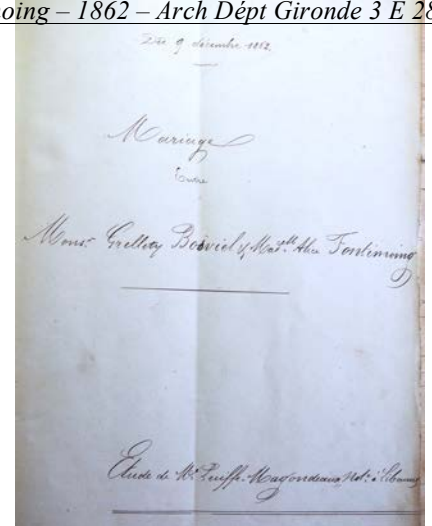 oing – 1862 – Arch Dépt Gironde 3 E 28
9 décembre 1862.
Mariage
Entre
Mons.r Grellety Boiviel & Mad.lle Alice Fontimoing
Etude de Me Puiffe-Magondeaux Not.e à Libourne